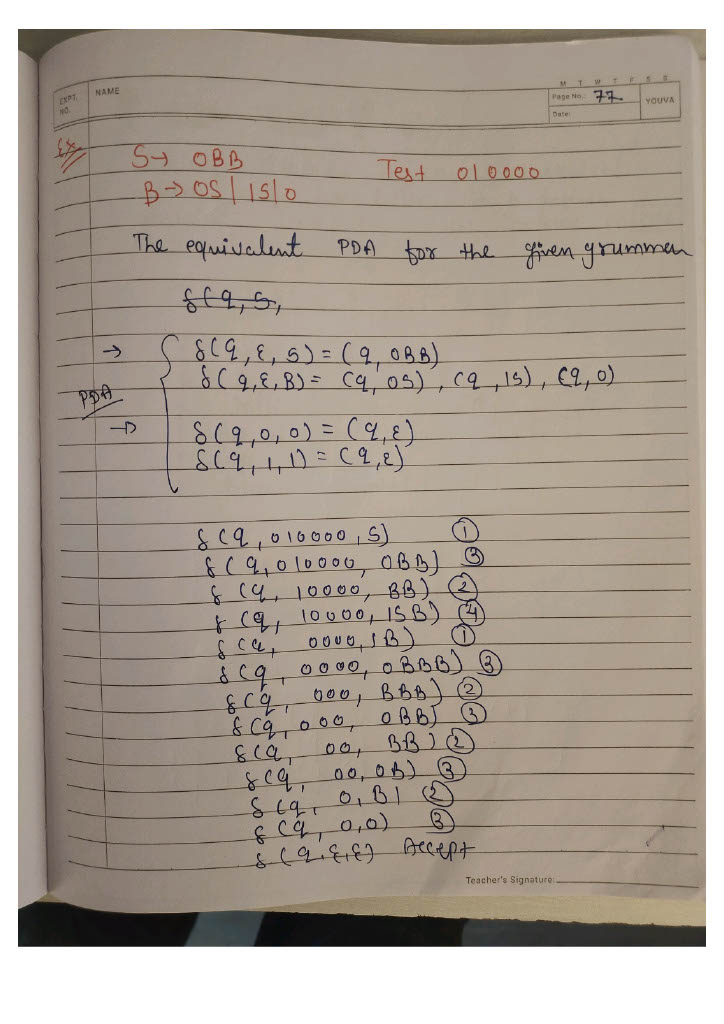 EXPT. NO.
NAME
M T W T F S S
Page No.: 77
Date:
YOUVA
Ex
S → 0BB Test 010000
B → 0S | 1S | 0
The equivalent PDA for the given grummer
δ(q, S,
→ δ(q, ε, S) = (q, 0BB)
δ(q, ε, B) = (q, 0S), (q, 1S), (q, 0)
PDA
→ δ(q, 0, 0) = (q, ε)
δ(q, 1, 1) = (q, ε)
δ(q, 010000, S) ①
δ(q, 010000, 0BB) ③
δ(q, 10000, BB) ②
δ(q, 10000, 1SB) ④
δ(q, 0000, SB) ①
δ(q, 0000, 0BBB) ③
δ(q, 000, BBB) ②
δ(q, 000, 0BB) ③
δ(q, 00, BB) ②
δ(q, 00, 0B) ③
δ(q, 0, B) ②
δ(q, 0, 0) ③
δ(q, ε, ε) Accept
Teacher's Signature: